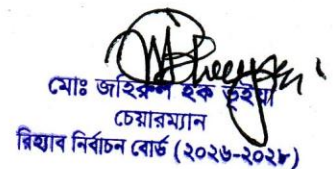 মোঃ জহিরুল হক ভূইয়া
চেয়ারম্যান
রিহ্যাব নির্বাচন বোর্ড (২০২৬-২০২৮)